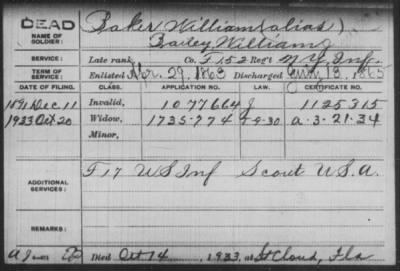 DEAD
NAME OF SOLDIER:
Baker William (alias)
Bailey, William
SERVICE:
Late rank, Co. F 152 Reg't N.Y. Inf.
TERM OF SERVICE:
Enlisted Apr. 29, 1863 Discharged 13, 1865
DATE OF FILING. CLASS. APPLICATION NO. CERTIFICATE NO.
1891 Dec. 11 Invalid, 1077664 1125315
1933 Oct 20 Widow, 1735-774 a-3-21-34
Minor,
ADDITIONAL SERVICES:
F 17 U S Inf Scout U.S.A.
REMARKS:
Died Oct 14, 1933, at St Cloud, Fla